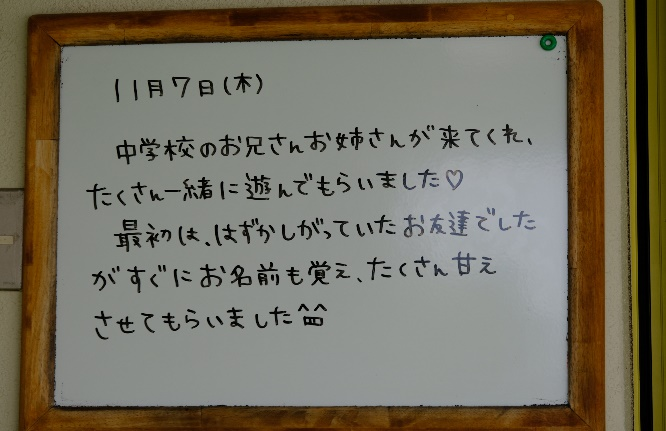 11月7日(木)
中学校のお兄さんお姉さんが来てくれ、
たくさん一緒に遊んでもらいました♡
最初は、はずかしがっていたお友達でした
がすぐにお名前も覚え、たくさん甘え
させてもらいました^^